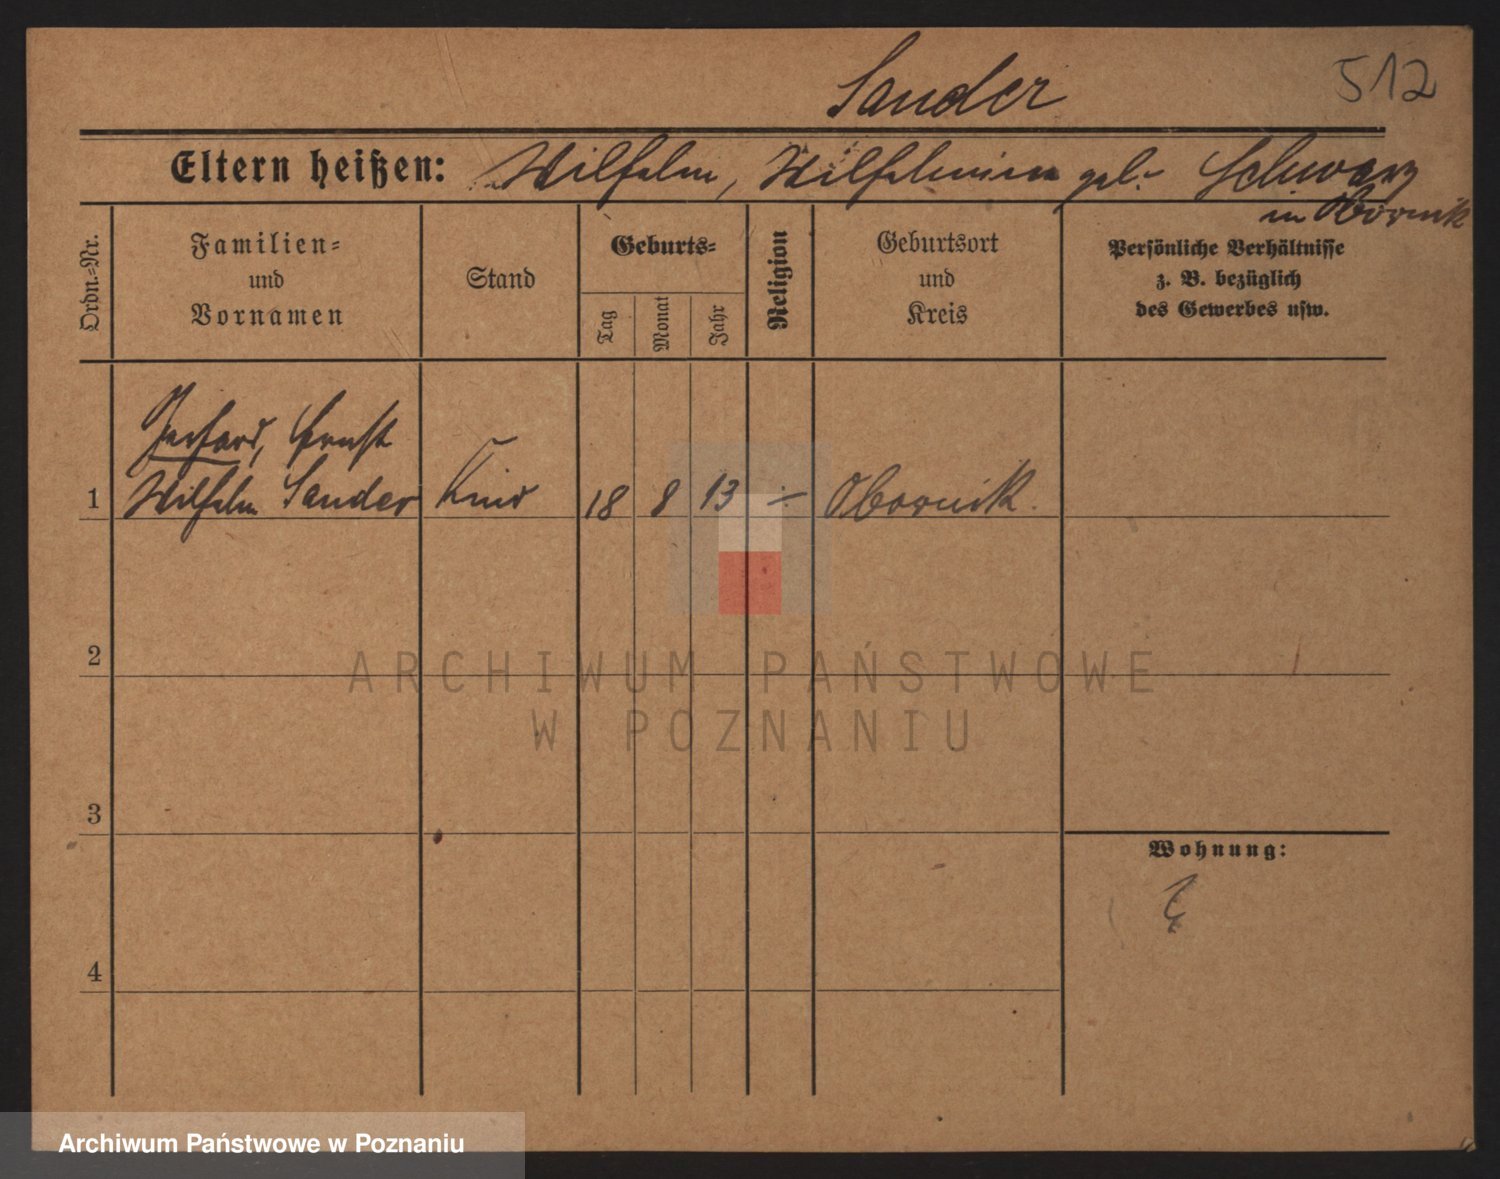 Sander
512
Eltern heißen: Wilhelm, Wilhelmine geb. Schwarz
in Obornik
Ordn.-Nr.
Familien-
und
Vornamen
Stand
Geburts-
Tag
Monat
Jahr
Religion
Geburtsort
und
Kreis
Persönliche Verhältnisse
z. B. bezüglich
des Gewerbes usw.
Gerhard, Ernst
1 Wilhelm Sander Kind 18 8 13 Obornik.
2
ARCHIWUM PAŃSTWOWE
W POZNANIU
3
Wohnung:
4
Archiwum Państwowe w Poznaniu